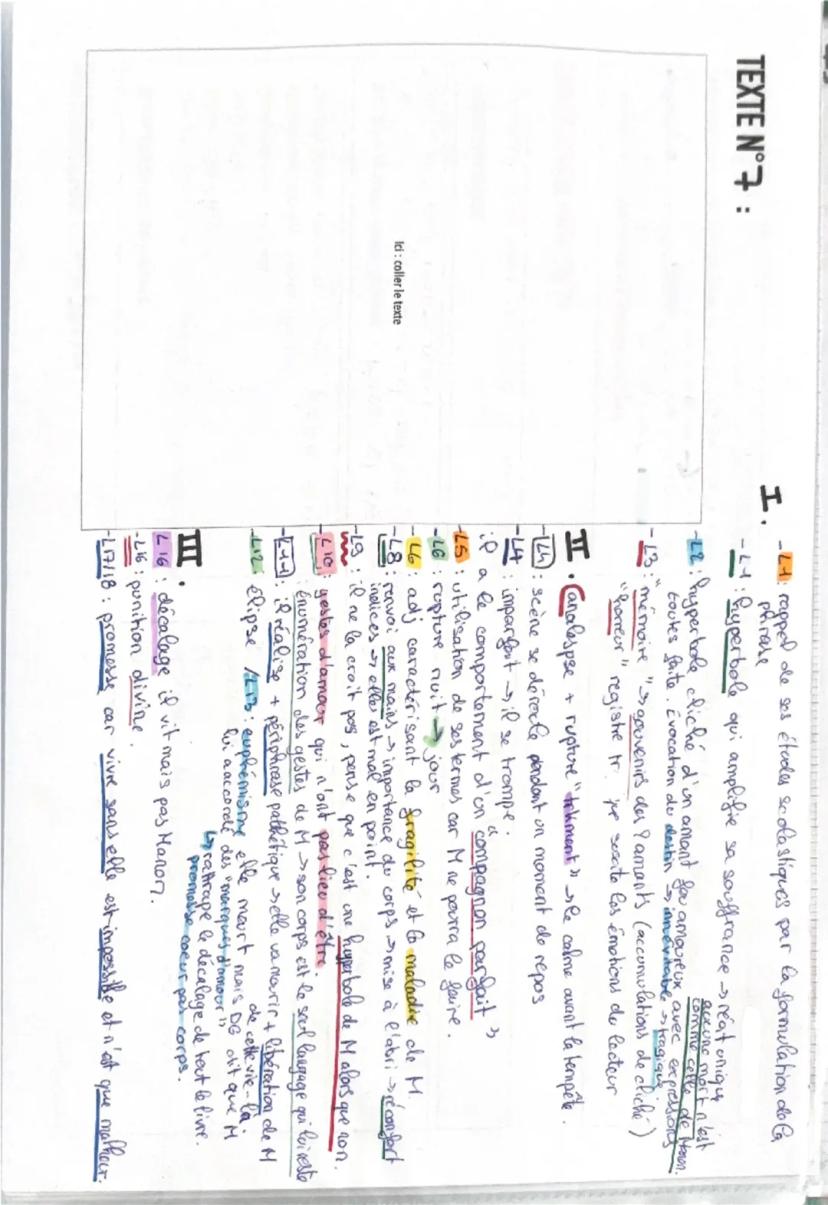 TEXTE N°7 :
Ici : coller le texte
I. - L1 : rappel de ses études scolastiques par la formulation de la
phrase
- L1 : hyperbole qui amplifie sa souffrance → récit unique
aucune mort n'est
comme celle de Manon.
- L2 : hyperbole cliché d'un amant fou amoureux avec expressions
toutes faite. Évocation du destin → inévitable → tragique
- L3 : "mémoire" → souvenirs des amants (accumulations de cliché)
"horreur" registre tr. suscite les émotions du lecteur
II. analepse + rupture "tranquillement" → le calme avant la tempête.
- L4 : scène se déroule pendant un moment de repos
- L4 : imparfait → il se trompe.
il a le comportement d'un "compagnon parfait"
- L5 : utilisation de ses termes car M ne pourra le faire.
- L6 : rupture nuit → jour
- L6 : adj caractérisant la fragilité et la maladie de M.
- L8 : renvoi aux mains → importance du corps → mise à l'abri → réconfort
indices → elle est mal en point.
- L9 : il ne le croit pas, pense que c'est une hyperbole de M alors que non.
- L10 : gestes d'amour qui n'ont pas lieu d'être
énumération des gestes de M → son corps est le seul langage qui lui reste
- L11 : il réalise + périphrase pathétique → elle va mourir + libération de M
de cette vie-là.
- L12 : élipse / L13 : euphémisme elle meurt mais DG dit que M
lui a accordé des "marques d'amour"
↳ rattrape le décalage de tout le livre.
promesse coeur par corps.
III.
L16 : décalage il vit mais pas Manon.
- L16 : punition divine.
- L17/18 : promesse car vivre sans elle est impossible et n'est que malheur.